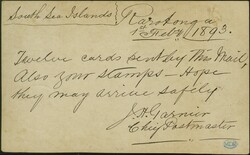 South Sea Islands} Rarotonga
1st Feby 1893.
Twelve cards sent by this Mail,
Also your stamps - Hope
they may arrive safely
J.H. Garnier
Chief Postmaster